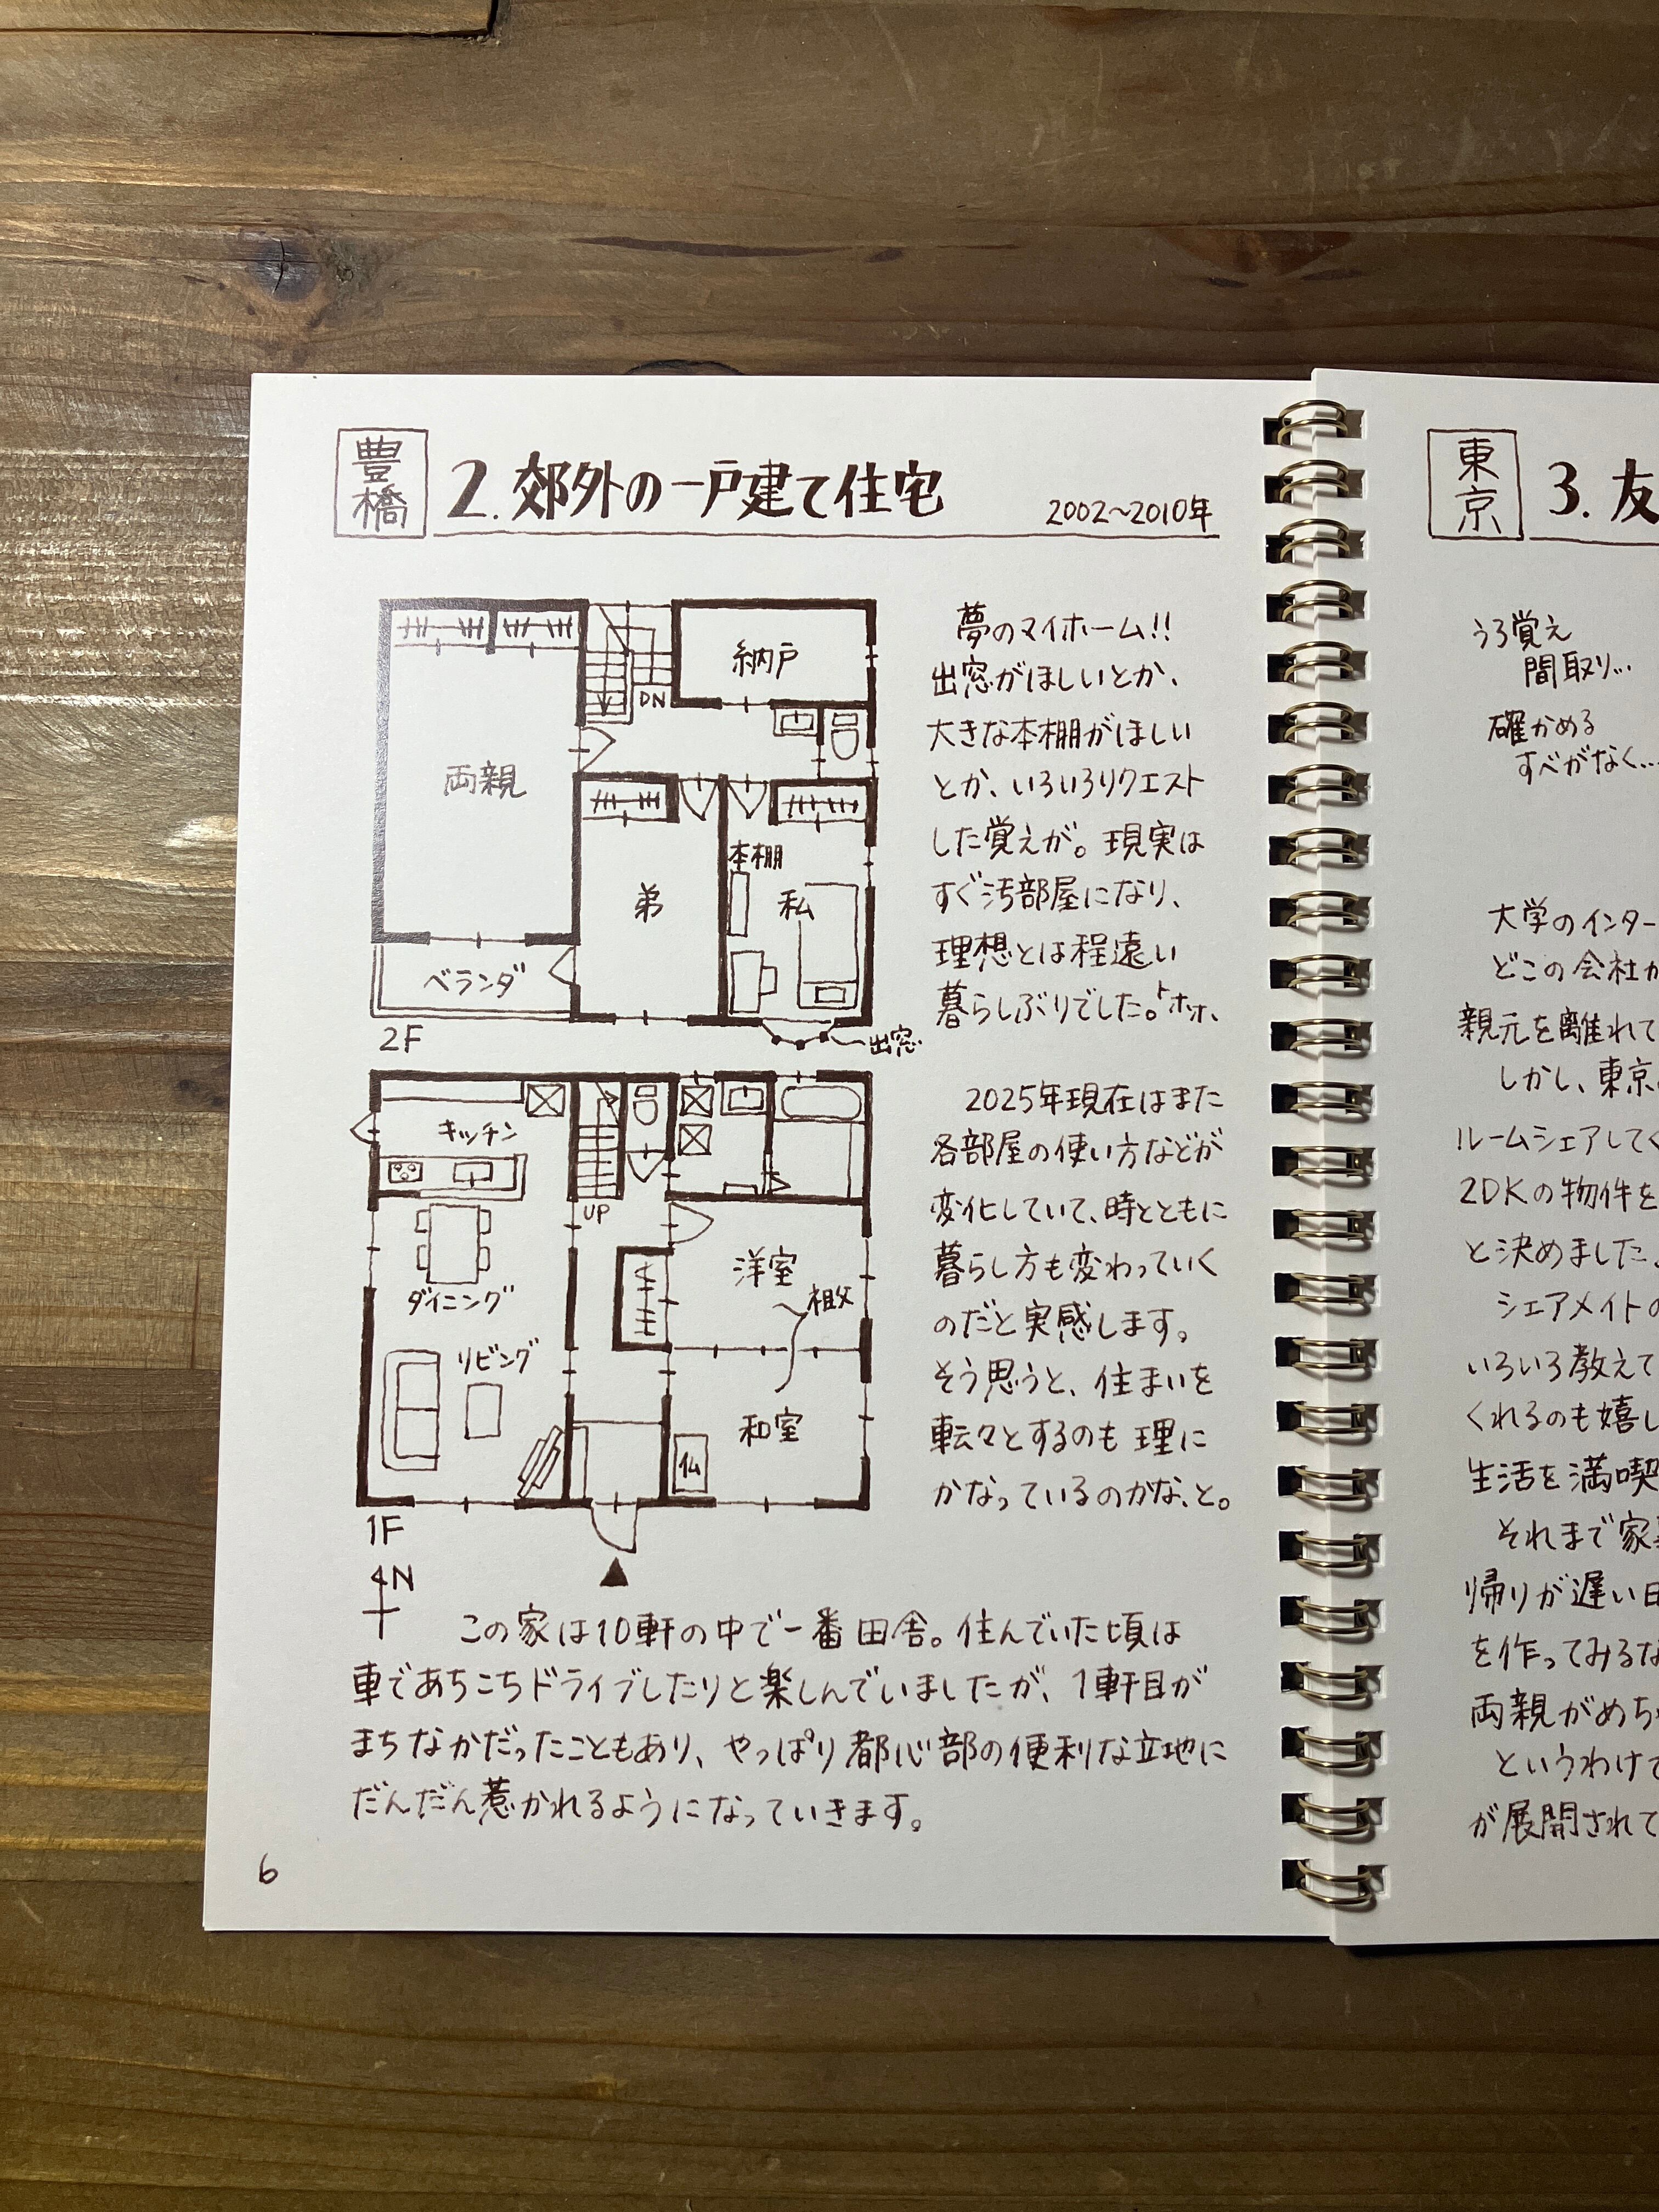 豊橋
2. 郊外の一戸建て住宅
2002〜2010年
納戸
DN
両親
本棚
弟
私
ベランダ
2F
出窓
キッチン
UP
洋室
ダイニング
リビング
和室
仏
1F
N
夢のマイホーム!!
出窓がほしいとか、
大きな本棚がほしい
とか、いろいろリクエスト
した覚えが。現実は
すぐ汚部屋になり、
理想とは程遠い
暮らしぶりでした。トホホ、
2025年現在はまた
各部屋の使い方などが
変化していて、時とともに
暮らし方も変わっていく
のだと実感します。
そう思うと、住まいを
転々とするのも理に
かなっているのかな、と。
この家は10軒の中で一番田舎。住んでいた頃は
車であちこちドライブしたりと楽しんでいましたが、1軒目が
まちなかだったこともあり、やっぱり都心部の便利な立地に
だんだん惹かれるようになっていきます。
6
東京
3. 友
うろ覚え
間取り…
確かめる
すべがなく…
大学のインター
どこの会社か
親元を離れて
しかし、東京
ルームシェアしてく
2DKの物件を
と決めました。
シェアメイトの
いろいろ教えて
くれるのも嬉し
生活を満喫
それまで家
帰りが遅い日
を作ってみるな
両親がめち
というわけで
が展開されて